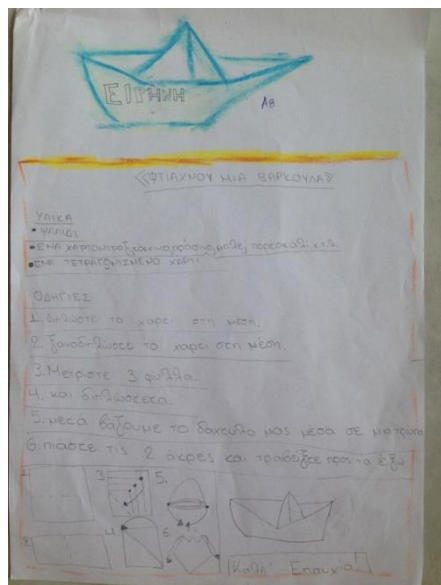 ΕΙΡΗΝΗ
Αβ
«ΦΤΙΑΧΝΟΥ ΜΙΑ ΒΑΡΚΟΥΛΑ»
ΥΛΙΚΑ
• ΨΑΛΙΔΙ
• ΕΝΑ ΧΑΡΤΟΝΙ κ.τ.λ.
• ΕΝΑ ΤΕΤΡΑΓΩΝΙΣΜΕΝΟ ΧΑΡΤΙ
ΟΔΗΓΙΕΣ
1. διπλώστε το χαρτι στη μέση.
2. ξαναδιπλώσεε το χαρτι στη μέση.
3. Μετρστε 3 φυλλα.
4. και διπλώσετα.
5. μεσα βάζουμε το δαχτυλο μας μέσα σε μια τρυπα
6. πιαστε τις 2 ακρες και τραβύξτε προς τα έξω
1.
3.
5.
2.
4.
6.
Καλή Επιτυχία!